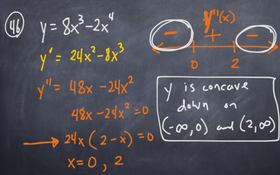 46
y = 8x³ – 2x⁴
y' = 24x² – 8x³
y'' = 48x – 24x²
48x – 24x² = 0
→ 24x ( 2 – x ) = 0
x = 0 , 2
y''(x)
– + –
0 2
y is concave
down on
(-∞, 0) and (2, ∞)